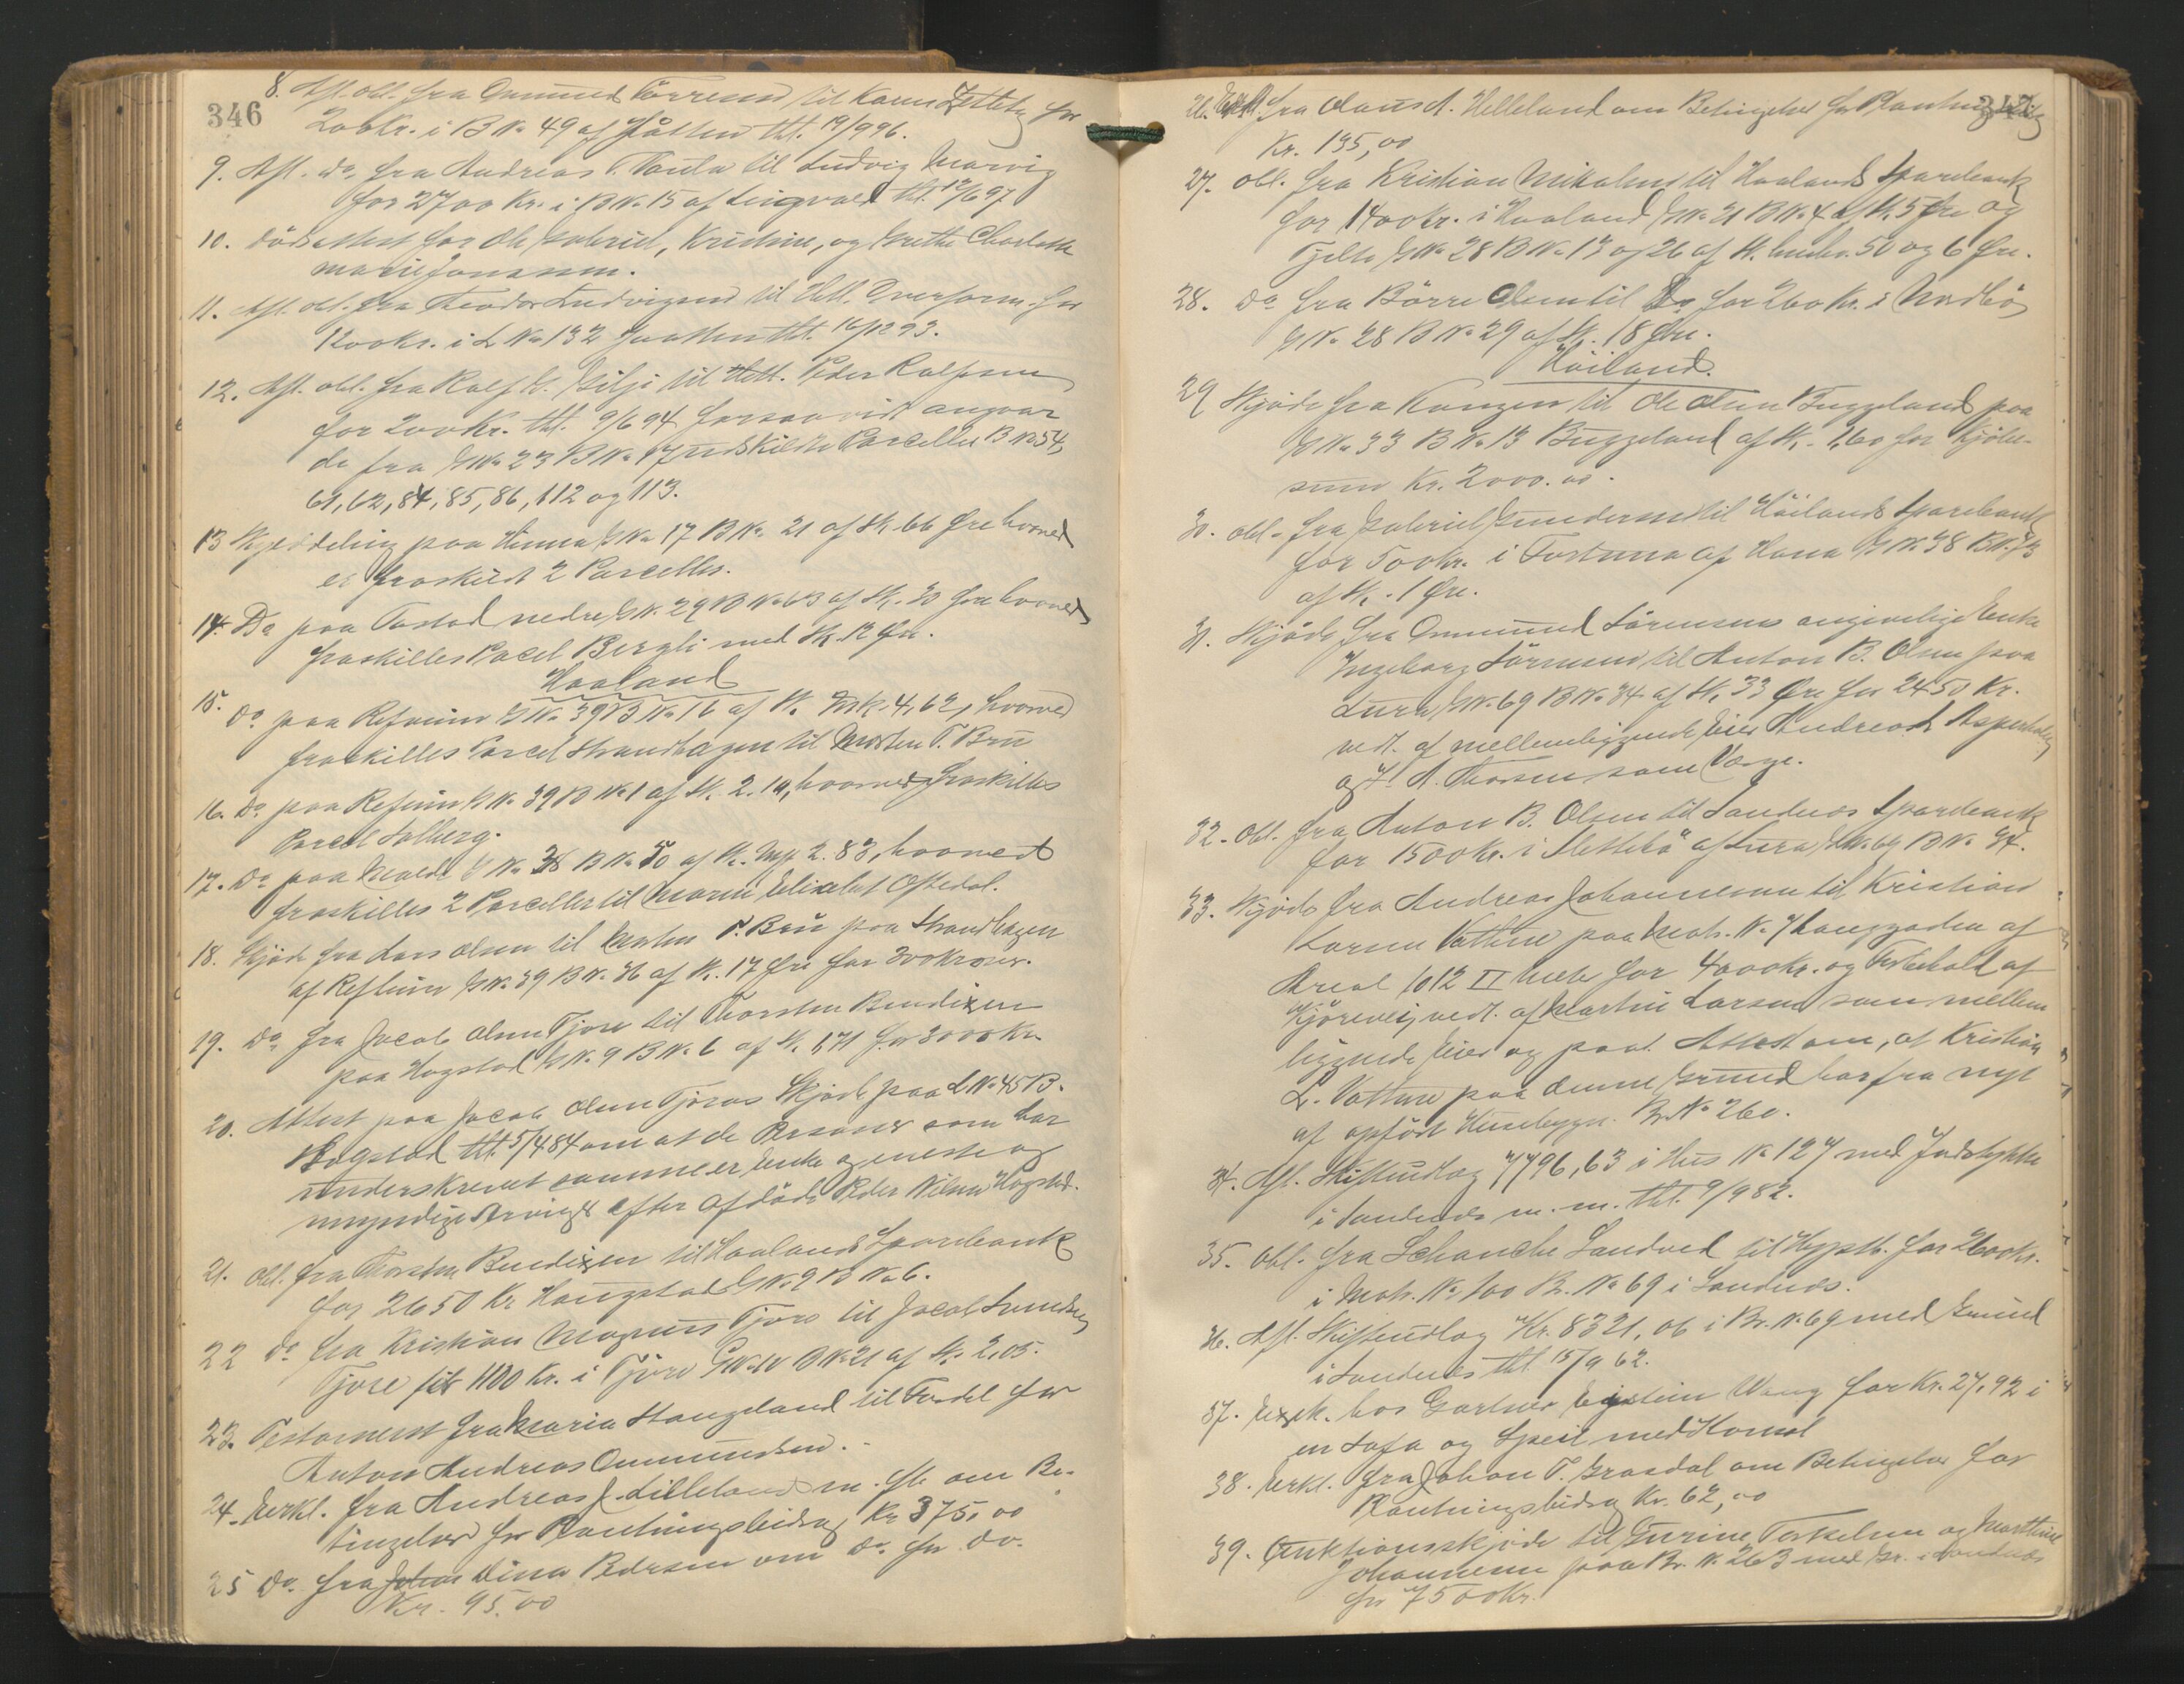 346
8. Afl. obl. fra Ommund Törresen til Karen Zetlitz for
200 Kr. i B No 49 af Jåtten tht. 19/9 96.
9. Afl. do fra Andreas T. Vaula til Ludvig Marvig
for 2700 Kr. i B No 15 af Lingvald tht. 12/6 97
10. Dödsattest for Ole Gabriel, Kristine, og Grethe Charlotte
Marie Jonassen.
11. Afl. obl. fra Theodor Ludvigsen til Hetl. Overform. for
1200 Kr. i L No 132 Jaatten tht. 16/12 93.
12. Afl. obl. fra Rolf P. Gilje til Hetl. Peder Rolfsen
for 2000 Kr. tht. 9/6 94 forsaavidt angaar
de fra G No 23 B No 17 udskildte Parceller B No 54,
61, 62, 84, 85, 86, 112 og 113.
13 Skylddeling paa Hinna G No 17 B No 21 af Sk. 66 Øre hvorved
er fraskildt 2 Parceller.
14. Do paa Tastad nedre G N. 29 B No 63 af Sk. 30 Øre hvorved
fraskilles Pacel Bergli med Sk. 12 Øre.
Haaland
15. Do paa Refsnæs G No 39 B No 16 af Sk. Mrk. 4,62, hvorved
fraskilles Parcel Strandhagen til Morten T. Bru
16. Do paa Refsnæs G N. 39 B No 1 af Sk. 2.10, hvorved fraskilles
Parcel Solberg.
17. Do paa Malde G No 38 B No 50 af Sk. My. 2.83, hvorved
fraskilles 2 Parceller til Maren Elisabet Oftedal.
18. Skjöde fra Lars Olsen til Morten T. Bru paa Strandhagen
af Refsnæs G No 39 B N. 36 af Sk. 17 Øre for 300 Kroner.
19. Do fra Jacob Olsen Tjore til Thorsten Bendixen
paa Hogstad G N. 9 B N. 6 af Sk. 1,71 for 3000 Kr.
20. Attest paa Jacob Olsen Tjoras Skjöde paa L No 45 B.
Hogstad tht. 5/4 84 om at de Personer som har
underskrevet samme er Enke og eneste og
myndige Arvinger efter afdöde Peder Nilsen Hogstad.
21. Obl. fra Thorsten Bendixen til Haalands Sparebank
for 2650 Kr Haugstad G No 9 B No 6.
22 Do fra Kristian Magnus Tjore til Jacob Svendsen
Tjore for 1100 Kr. i Tjöre G No 10 B No 21 af Sk. 2,05.
23. Testament fra Maria Stangeland til Fordel for
Anton Andreas Ommundsen.
24. Erkl. fra Andreas J. Lilleland m. fl. om Be-
tingelser for Plantningsbidrag Kr 375,00
25 Do. fra Johan Dina Pedersen om do. for do.
Kr. 95.00
347
26. Erkl. fra Olaus A. Helleland om Betingelser for Plantningsbidrag
Kr. 135,00
27. Obl. fra Kristian Mikalsen til Haalands Sparebank
for 1400 Kr. i Haaland G No 21 B No 4 af Sk. 5 Øre og
Tjelte G No 28 B No 13 og 26 af Sk. henhv. 50 og 6 Øre.
28. Do fra Börre Olsen til Do for 260 Kr. i Nordbö
G No 28 B No 29 af Sk. 18 Øre.
Höiland.
29 Skjöde fra Kongen til Ole Olsen Buggeland paa
G No 33 B No 13 Buggeland af Sk. 1,60 for Kjöbe-
sum Kr. 2000.00.
30. Obl. fra Gabriel Gundersen til Höilands Sparebank
for 500 Kr. i Fortuna af Hana G No 38 B N. 73
af Sk. 1 Øre.
31. Skjöde fra Ommund Sörensens angivelige Enke
Ingeborg Sörensen til Anton B. Olsen paa
Lura G No 69 B No 34 af Sk. 33 Øre for 2450 Kr.
vedt. af mellemliggende Eier Andreas A. Asperholen
og F. A. Thorsen som Værge.
32. Obl. fra Anton B. Olsen til Sandnes Sparebank
for 1500 Kr. i "Slettebö" af Lura G No 69 B No 34.
33. Skjöde fra Andreas Johannesen til Kristian
Larsen Vatne paa Matr. No 7 Langgaden af
Areal 1012 □ Meter for 4000 Kr. og Forbehold af
Kjörevei, vedt. af Martin Larsen som mellem-
liggende Eier og paat. Attest om, at Kristian
L. Vatne paa denne Grund har fra nyt
af opfört Husebygn. Br. No 260.
34. Afl. Skifteudlæg 7796,63 i Hus No 127 med Jordstykke
i Sandnes m. m. tht. 9/9 82.
35. Obl. fra Schanche Sandved til Hypth. for 2600 Kr.
i Matr. No 100 Br. No 69 i Sandnes.
36. Afl. Skifteudlæg Kr. 8321,06 i Br. No 69 med Grund
i Sandnes tht 15/9 62.
37. Exek. hos Gartner Eystein Wang for Kr. 27,92 i
en Sofa og Speil med Konsol
38. Erkl. fra Johan T. Grasdal om Betingelse for
Plantningsbidrag Kr. 62,00
39. Auktionsskjöde til Gurine Torkelsen og Marthine
Johannesen paa Br. N. 263 med Gr. i Sandnes
for 7500 Kr.